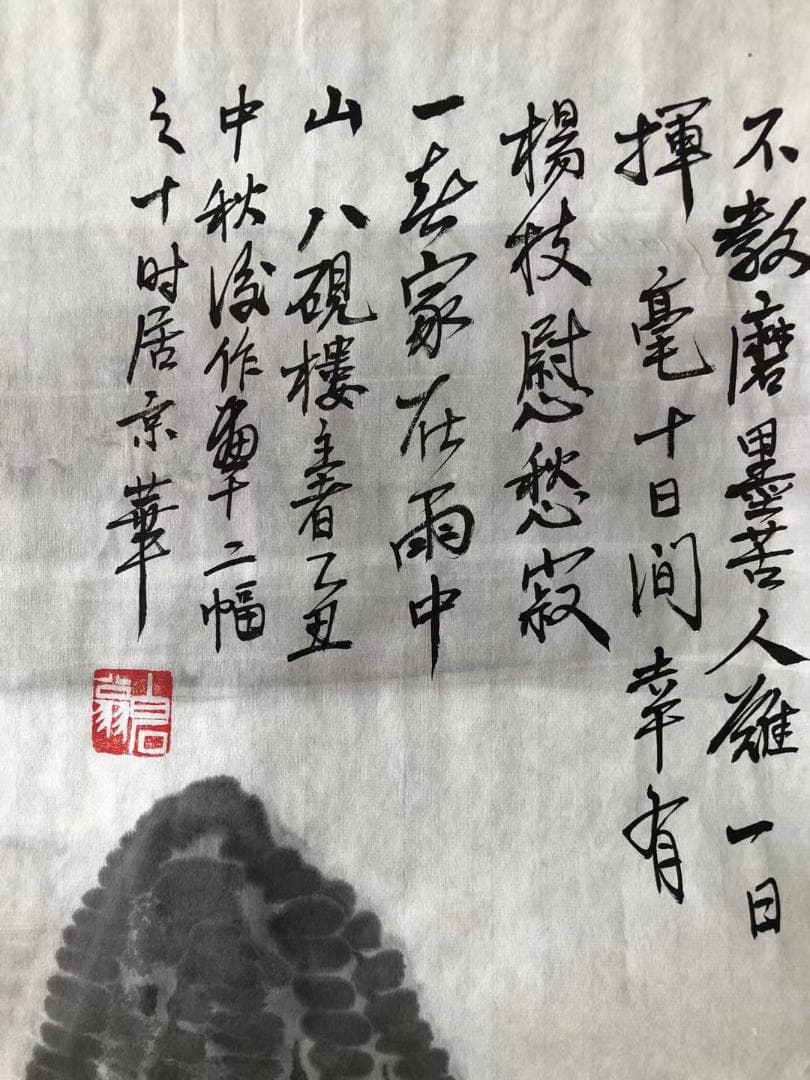 不教磨墨苦人難一日
揮毫十日间幸有
楊枝慰愁寂
一春家在雨中
山八硯樓主者乙丑
中秋後作畫十二幅
之十时居京華
白石翁